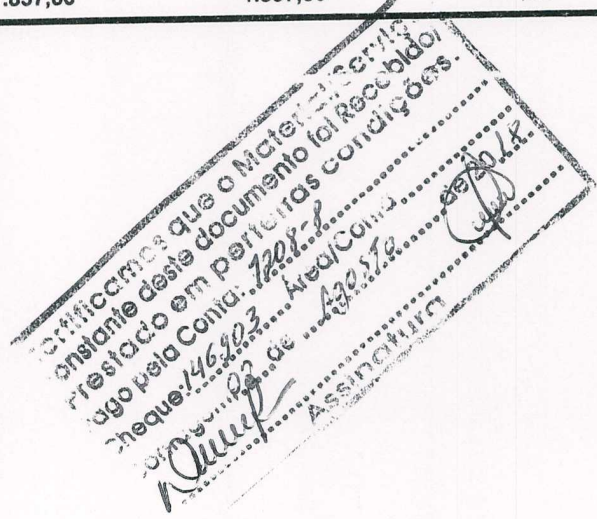 .857,00
ertificamos que o Material/Serviço
onstante deste documento foi Recebido/
Prestado em perfeitas condições.
ago pela Conta: 7208-8
heque: 146903 Área/Conta
02 de Agosto de 2018
Assinatura